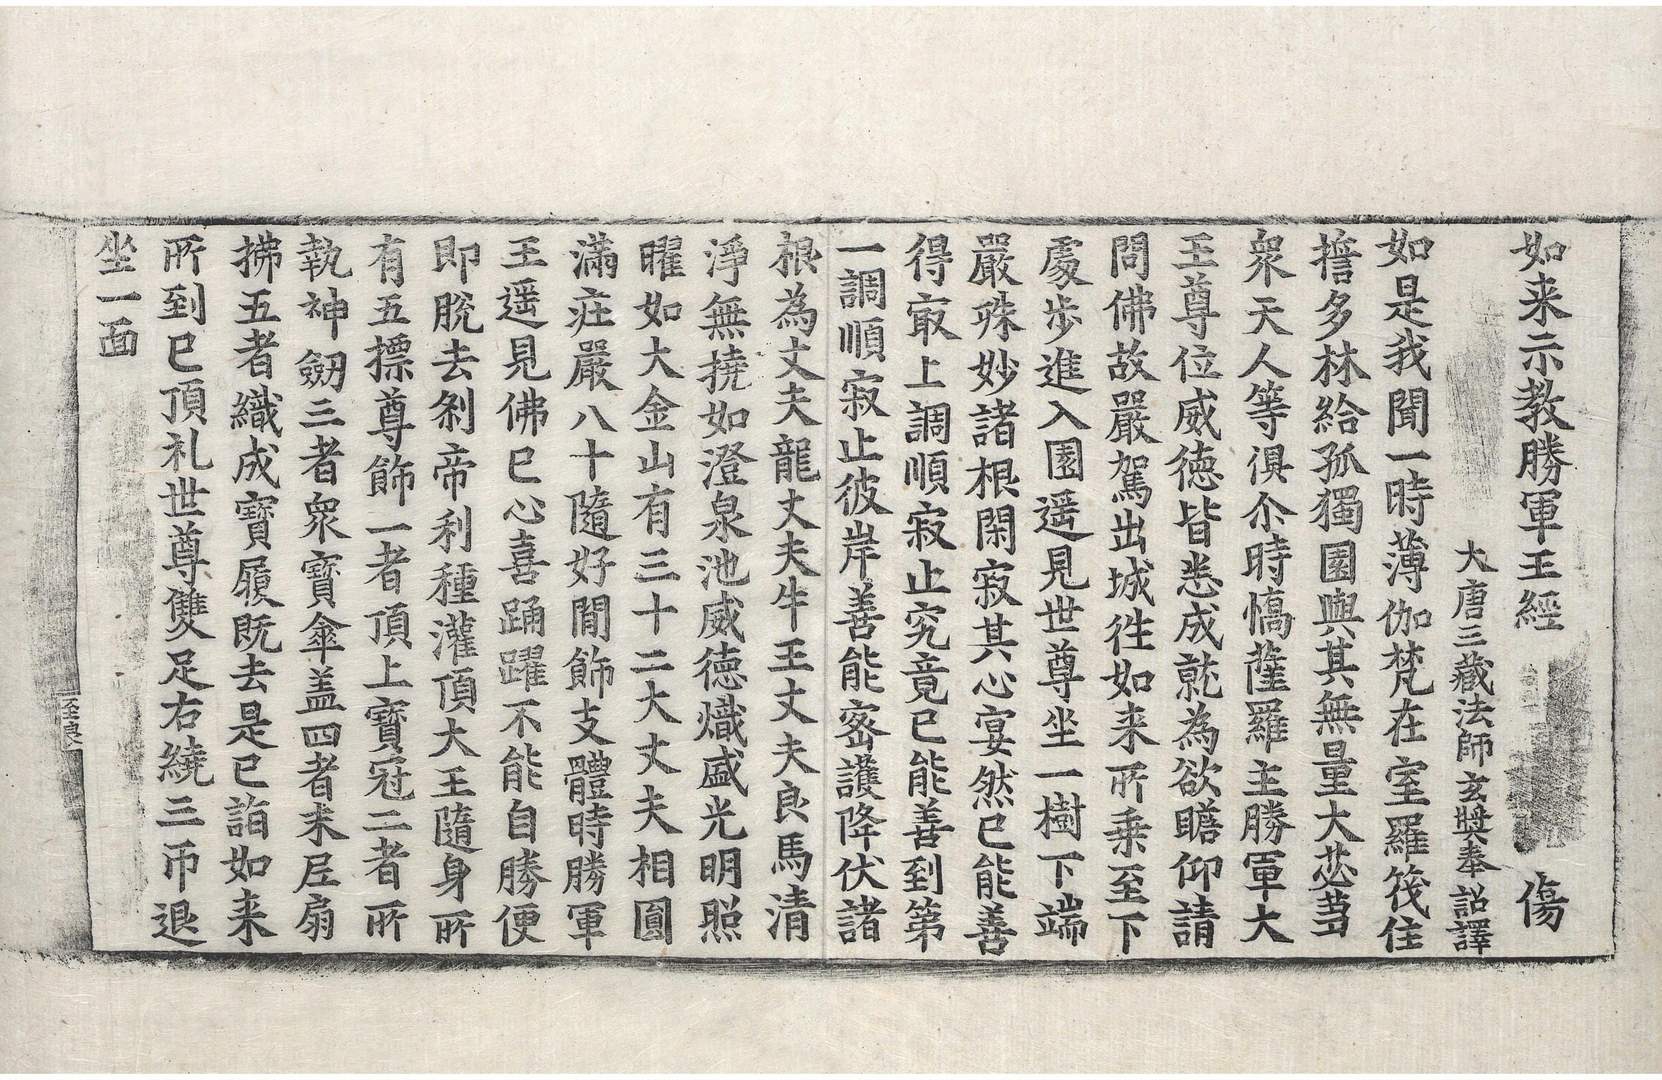 如来示教勝軍王經　傷
大唐三藏法師玄奘奉　詔譯
如是我聞一時薄伽梵在室羅筏住
擔多林給孤獨園與其無量大苾芻
衆天人等俱尒時憍薩羅主勝軍大
王尊位威徳皆悉成就為欲瞻仰請
問佛故嚴駕出城徃如来所乗至下
處歩進入園遥見世尊坐一樹下端
嚴殊妙諸根閑寂其心宴然已能善
得㝡上調順寂止究竟已能善到第
一調順寂止彼岸善能密護降伏諸
根為丈夫龍丈夫牛王丈夫良馬清
淨無撓如澄泉池威徳熾盛光明照
曜如大金山有三十二大丈夫相圓
滿莊嚴八十隨好間飾支體時勝軍
王遥見佛已心喜踊躍不能自勝便
即脫去刹帝利種灌頂大王隨身所
有五摽尊飾一者頂上寶冠二者所
執神劔三者衆寶傘盖四者末尼扇
拂五者織成寶履既去是已詣如来
所到已頂礼世尊雙足右繞三帀退
坐一面